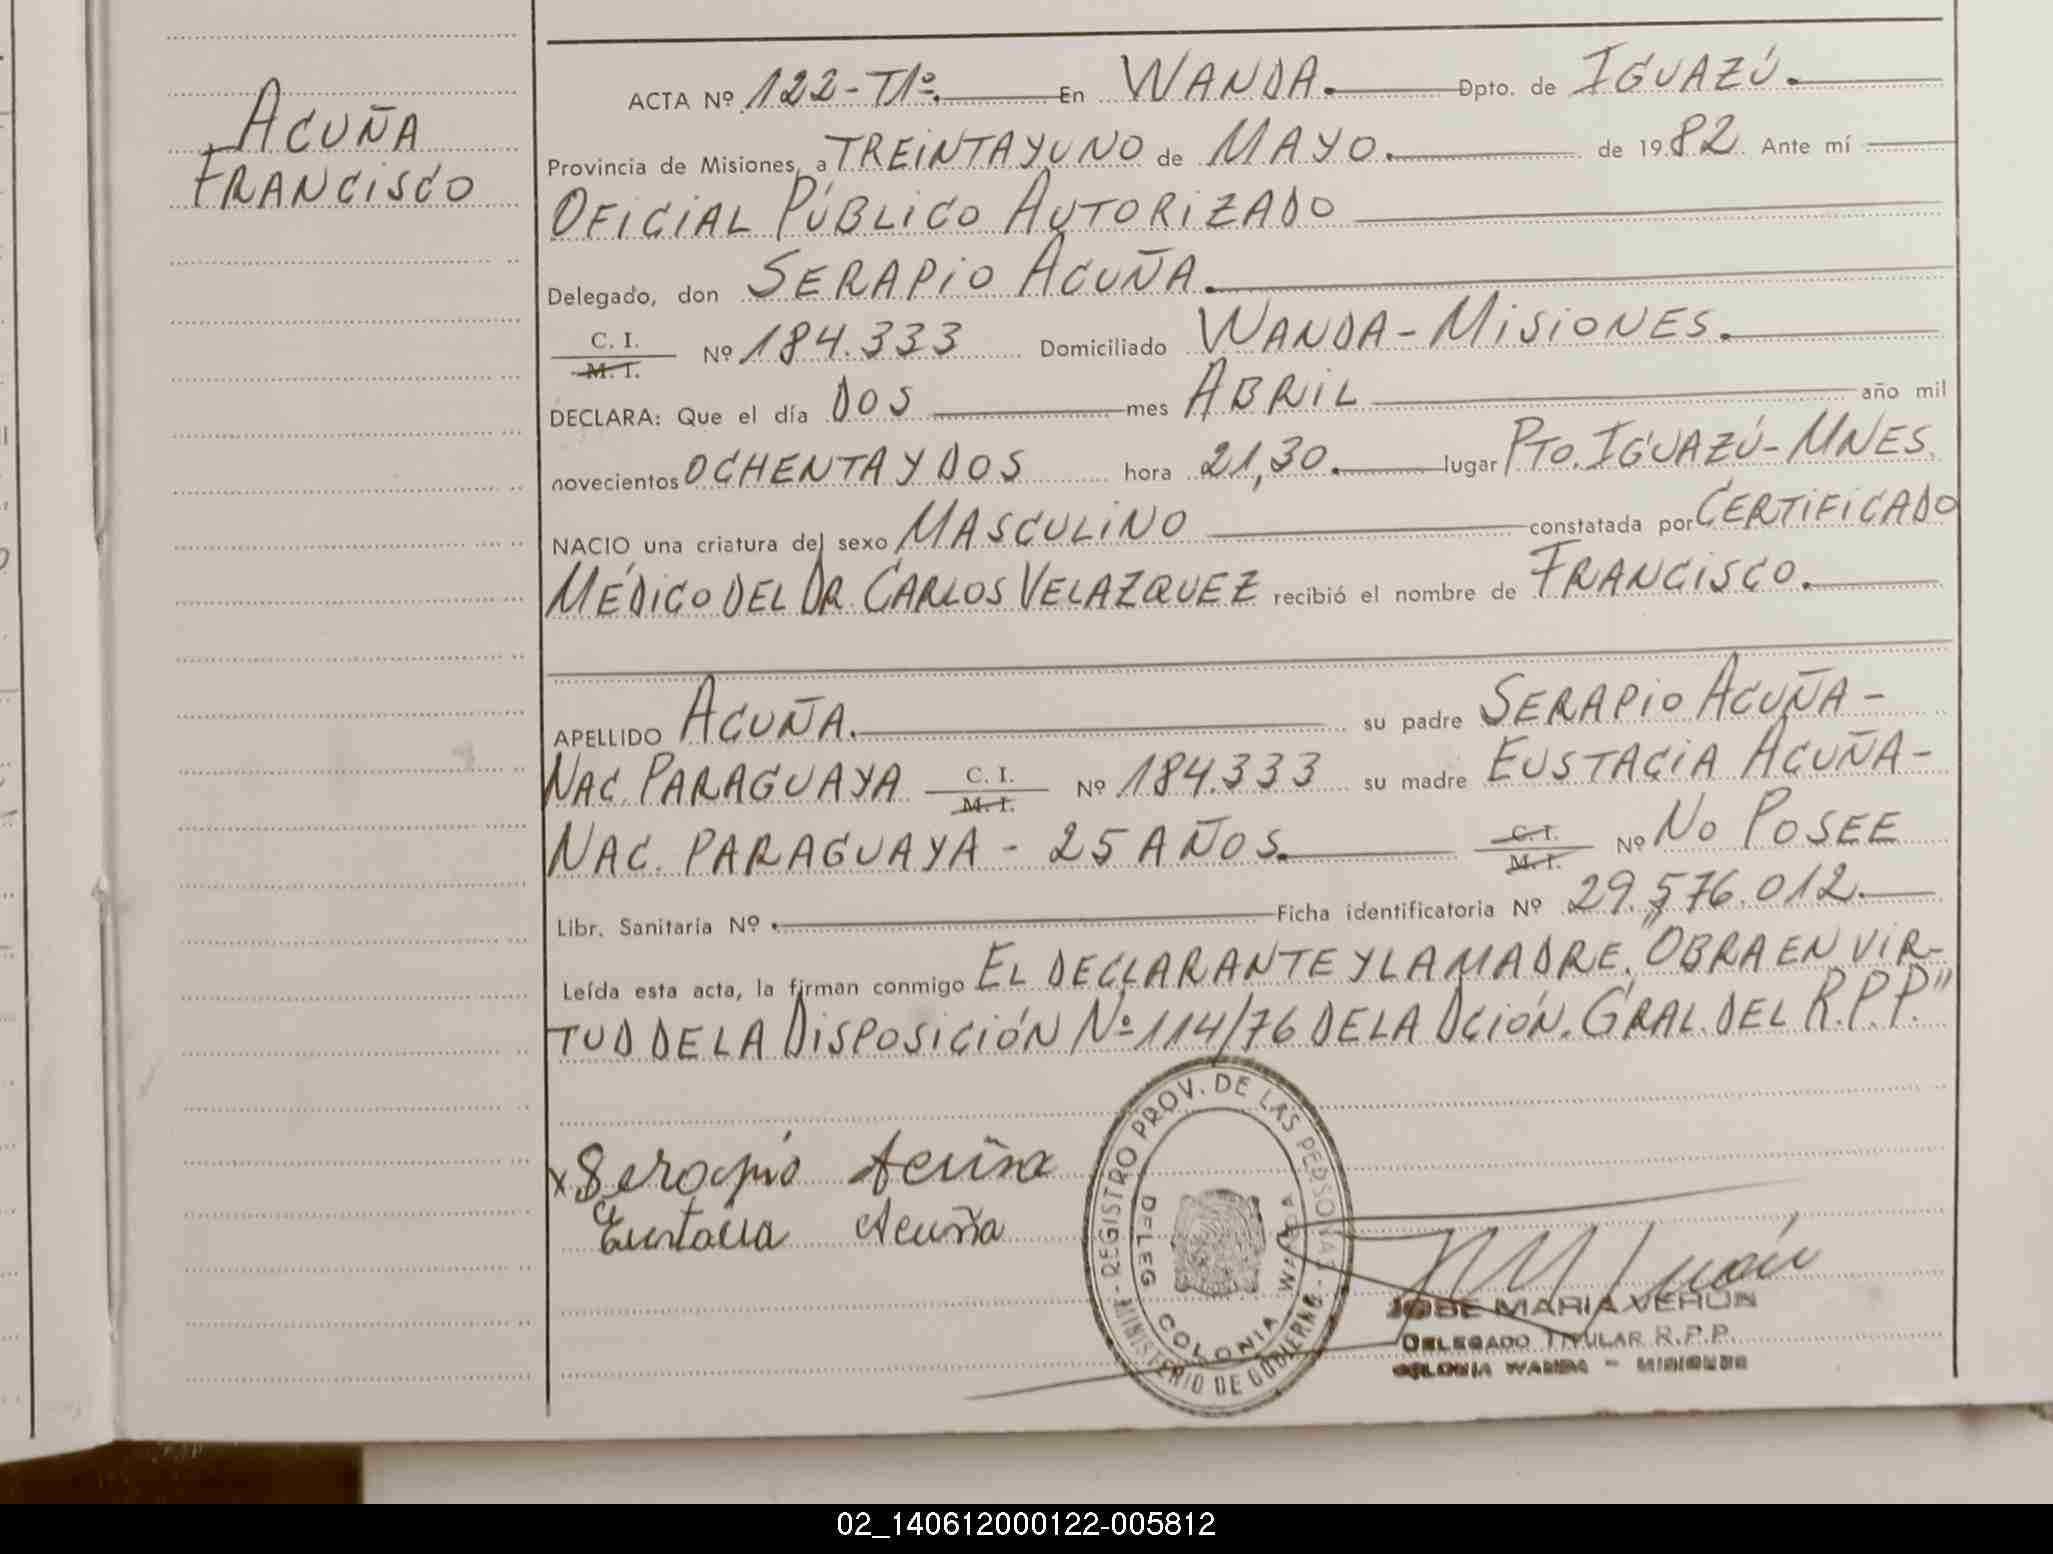 ACUÑA
FRANCISCO
ACTA Nº 122-T1º. En WANDA. Dpto. de IGUAZÚ.
Provincia de Misiones, a TREINTA Y UNO de MAYO. de 1982 Ante mí
OFICIAL PÚBLICO AUTORIZADO
Delegado, don SERAPIO ACUÑA.
C. I.
M. I. Nº 184.333 Domiciliado WANDA-MISIONES.
DECLARA: Que el día DOS mes ABRIL año mil
novecientos OCHENTA Y DOS hora 21,30. lugar PTO. IGUAZÚ-MNES.
NACIO una criatura del sexo MASCULINO constatada por CERTIFICADO
MÉDICO DEL DR. CARLOS VELAZQUEZ recibió el nombre de FRANCISCO.
APELLIDO ACUÑA. su padre SERAPIO ACUÑA-
NAC. PARAGUAYA C. I. M. I. Nº 184.333 su madre EUSTACIA ACUÑA-
NAC. PARAGUAYA - 25 AÑOS. C. I. M. I. Nº NO POSEE
Libr. Sanitaria Nº Ficha identificatoria Nº 29.576.012.
Leída esta acta, la firman conmigo EL DECLARANTE Y LA MADRE. "OBRA EN VIR-
TUD DE LA DISPOSICIÓN Nº 114/76 DE LA DCIÓN. GRAL. DEL R.P.P."
x Serapio Acuña
Eustacia Acuña
REGISTRO PROV. DE LAS PERSONAS - MINISTERIO DE GOBIERNO -
DELEG COLONIA WANDA
JOSE MARIA VERUN
DELEGADO TITULAR R.P.P.
COLONIA WANDA - MISIONES
02_140612000122-005812